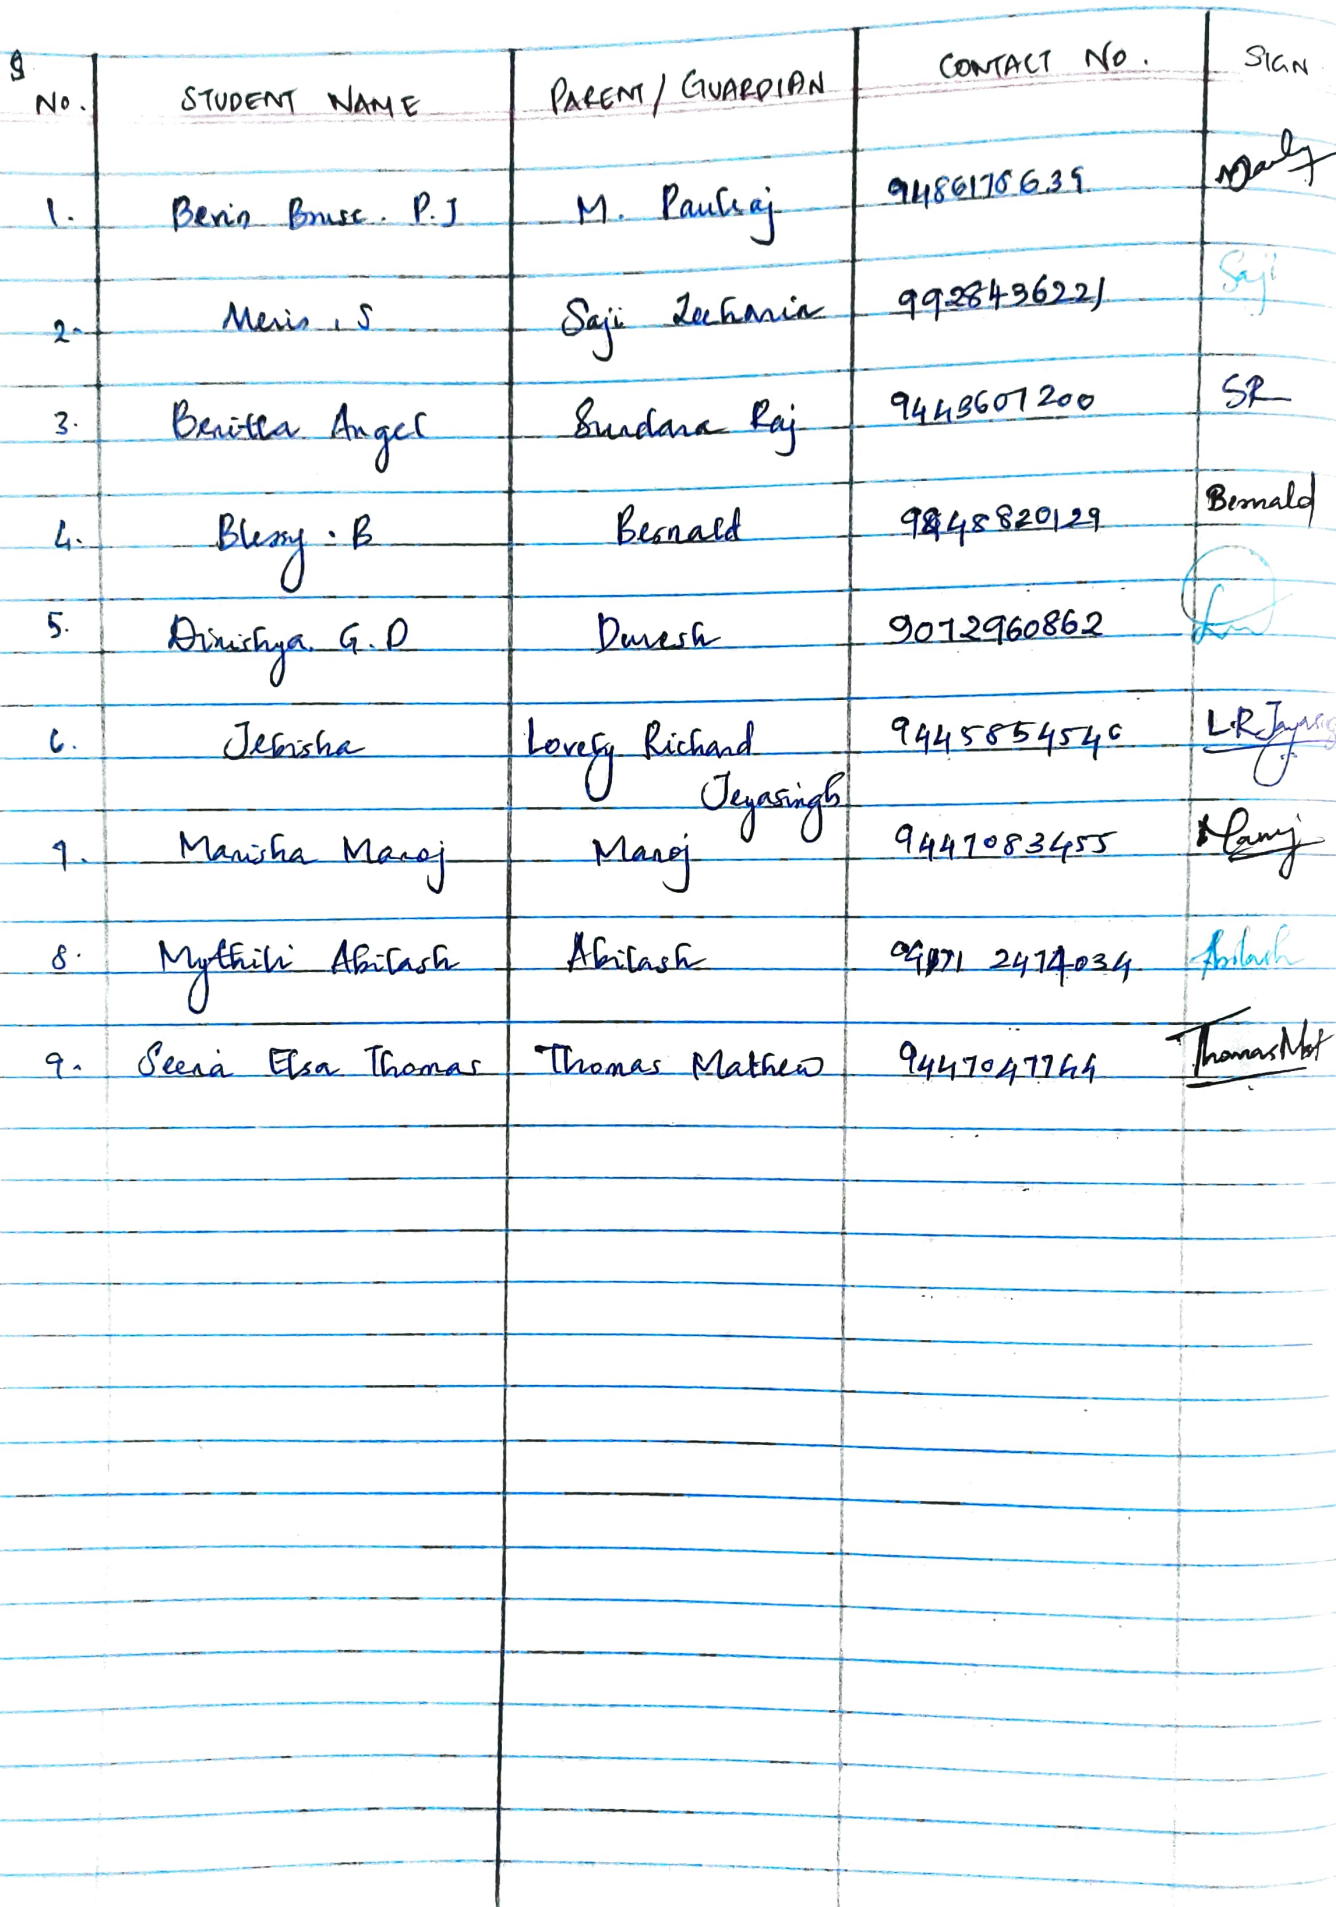 S No. STUDENT NAME PARENT / GUARDIAN CONTACT NO. SIGN
1. Berin Bruse. P.J M. Paulraj 9486178639
2. Meris . S Saji Zecharia 9928436221 Saji
3. Beritta Angel Sundara Raj 9443607200 SR
4. Blessy . B Bernald 9848820129 Bernald
5. Dinishya. G. D Duresh 9072960862
6. Jebisha Lovely Richard 9445854546 L.R Jayasing
Jeyasingh
7. Manisha Manoj Manoj 9447083455 Manoj
8. Mythili Abilash Abilash 2474034 Abilash
9. Seena Elsa Thomas Thomas Mathew 9447047744 Thomas Mat